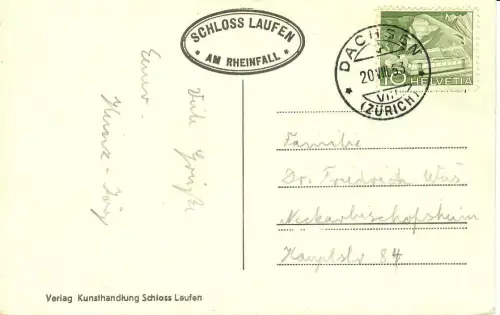 SCHLOSS LAUFEN
* AM RHEINFALL *
DACHSEN
20.VIII.53
VIII
(ZÜRICH)
10 HELVETIA
Viele Grüße
Euer
Heinz-Jörg
Familie
Dr. Friedrich
Neckarbischofsheim
Hauptstr 84
Verlag Kunsthandlung Schloss Laufen